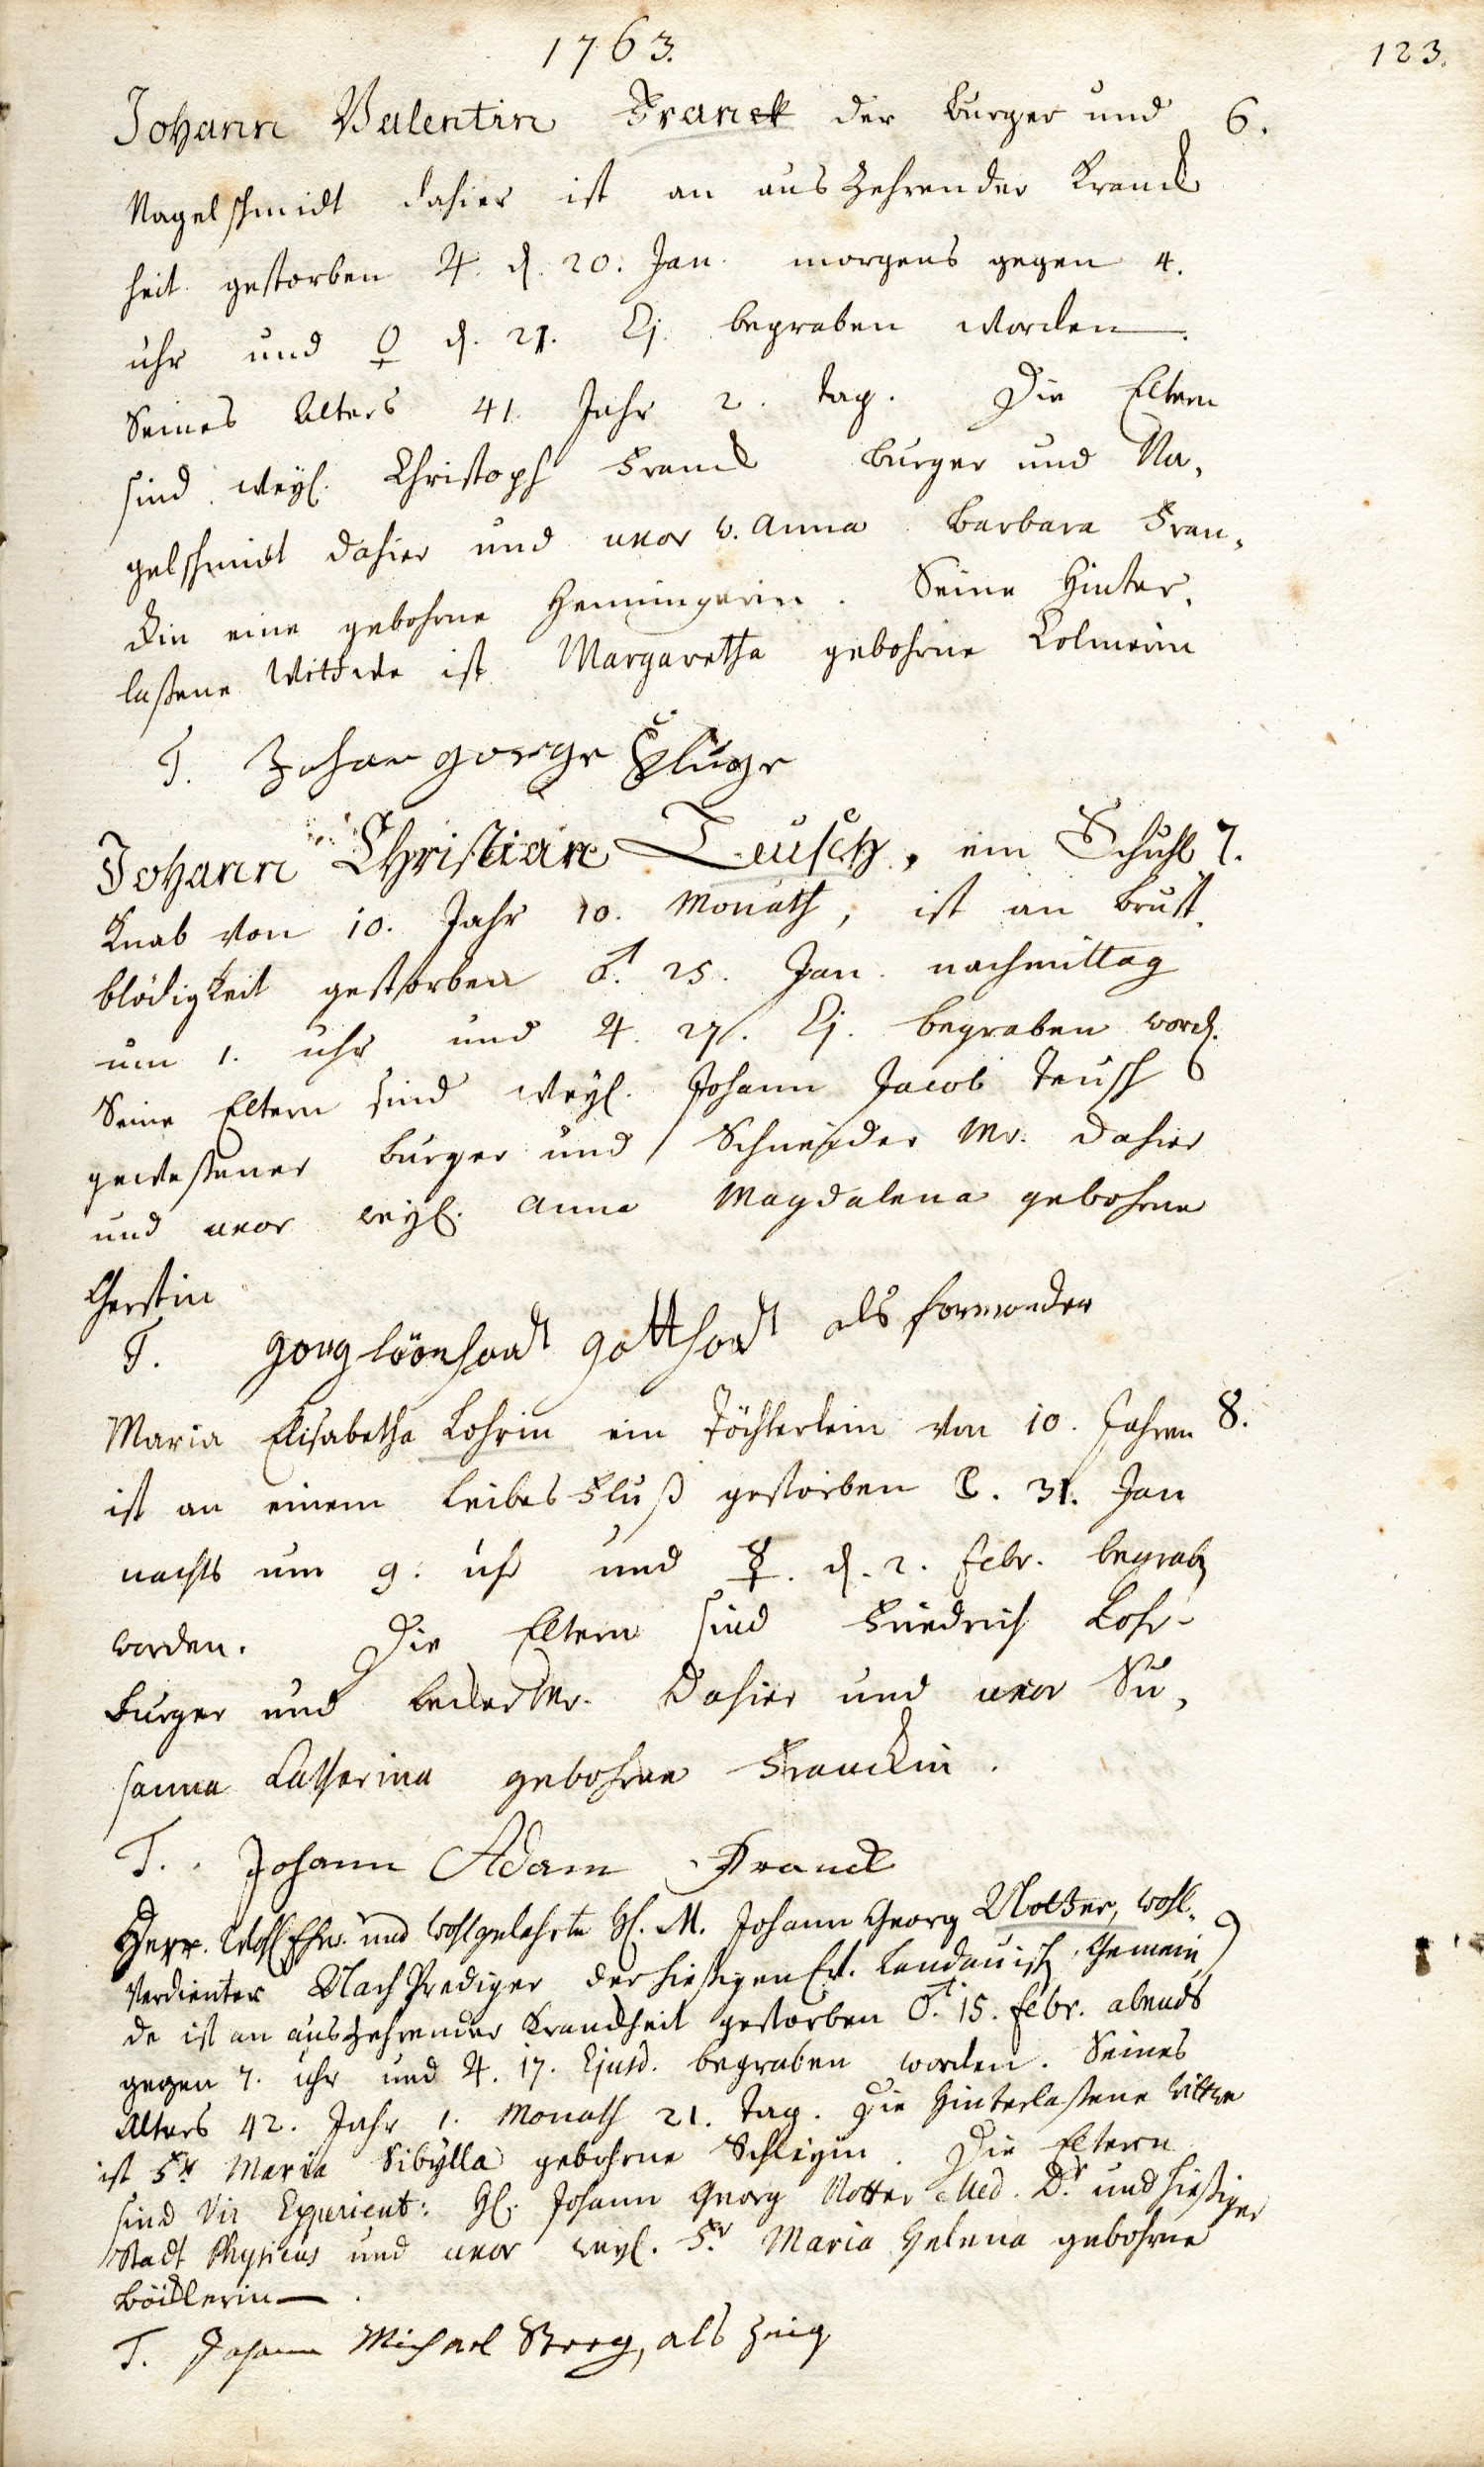 1763.
123.
Johann Valentin Franck der Burger und 6.
Nagelschmidt dahier ist an auszehrender Kranck
heit gestorben ♃. d. 20. Jan. morgens gegen 4.
uhr und ♀ d. 21. Ej. begraben worden.
Seines Alters 41. Jahr 2. tag. Die Eltern
sind weyl. Christoph Franck Burger und Na,
gelschmidt dahier und uxor w. Anna Barbara Fran,
ckin eine gebohrne Henningerin. Seine Hinter,
laßene Wittwe ist Margaretha gebohrne
T. Johan George Pluge
Johann Christian Teusch, ein Schuhl 7.
Knab von 10. Jahr 10. Monath, ist an Brust
blödigkeit gestorben ♂. 25. Jan. nachmittag
um 1. uhr und ♃. 27. Ej. begraben word.
Seine Eltern sind weyl. Johann Jacob Teusch
geweßener Burger und Schneider Mr. dahier
und uxor weyl. Anna Magdalena gebohrne
Gerstin
T. Gorg Löonhardt Gotthardt als formonder
Maria Elisabetha Lohrin ein Töchterlein von 10. Jahren 8.
ist an einem Leibes Fluß gestorben ☾. 31. Jan
nachts um 9. uhr und ☿. d. 2. Febr. begrab
worden. Die Eltern sind Friedrich Lohr
Burger und Becker Mr. dahier und uxor Su,
sanna Catharina gebohrne Franckin.
T. Johann Adam Franck
Herr. Wohl Ehrw. und Wohlgelehrte H. M. Johann Georg Notter, wohl,
Verdienter Nach Prediger der hießigen Ev. Landauisch Gemein, 9
de ist an auszehrender Kranckheit gestorben ♂. 15. Febr. abends
gegen 7. uhr und ♃. 17. Ejusd. begraben worden. Seines
Alters 42. Jahr 1. Monath 21. tag. Die Hinterlaßene Wittwe
ist Fr. Maria Sibylla gebohrne Die Eltern
sind Vir Experient: H. Johann Georg Notter Med. Dr. und hießiger
Stadt Physicus und uxor weyl. Fr. Maria Helena gebohrne
Böcklerin.
T. Johann Michael als Zeug